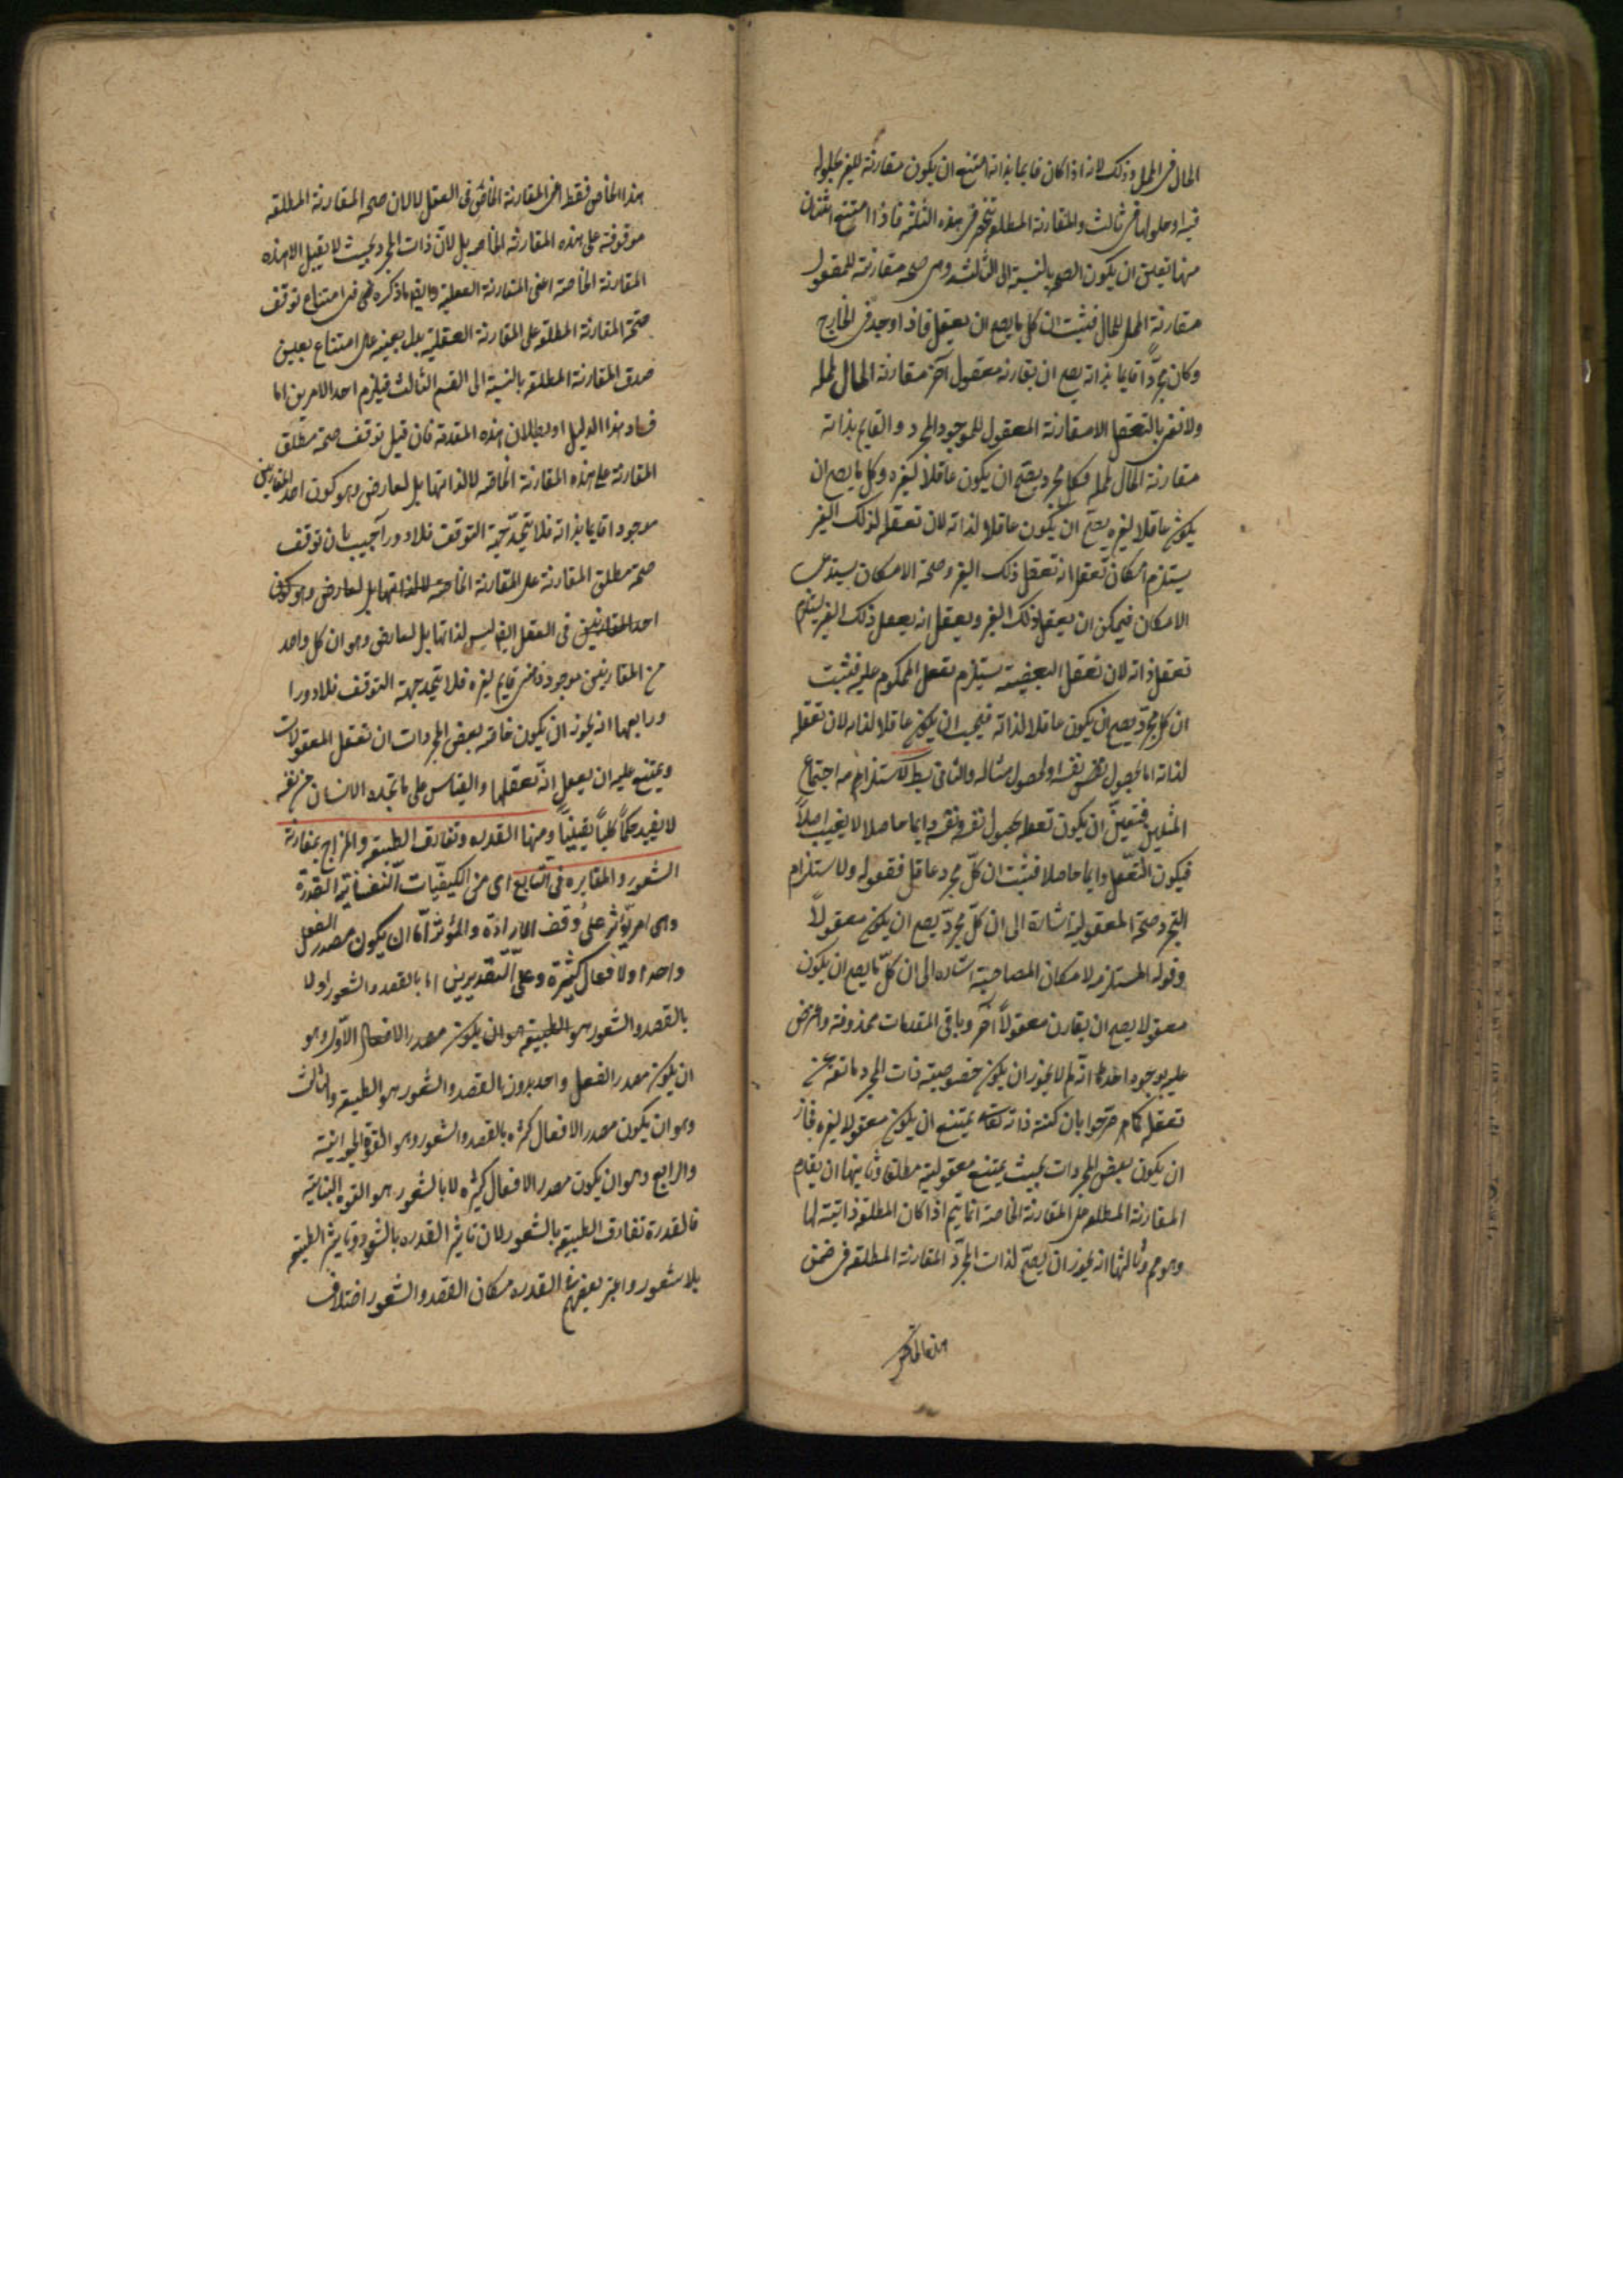 الحال فى المحل وذلك لانه اذا كان قايما بذاته امتنع ان يكون مقارنته للغير بحلوله
فيه او حلولهما فى ثالث والمقارنة المطلقه تنحصر فى هذه الثلثة فاذا امتنع اثنان
منها تعين ان يكون الصحه بالنسبة الى الثالث وهى صحه مقارنته للمعقول
مقارنة المحل للحال فثبت ان كل ما يصح ان يعقل فاذا وجد فى الخارج
وكان مجردًا قايما بذاته يصح ان يقارنه معقول آخر مقارنة الحال لمحله
ولا نعنى بالتعقل الا مقارنة المعقول للموجود المجرد والقايم بذاته
مقارنة الحال لمحله فكل مجرد يصح ان يكون عاقلا لغيره وكل ما يصح ان
يكون عاقلا لغيره يصح ان يكون عاقلا لذاته لان تعقله لذلك الغير
يستلزم امكان تعقل انه تعقل ذلك الغير وصحة الامكان يستدعى
الامكان فيمكن ان يعقل ذلك الغير ويعقل انه يعقل ذلك الغير يستلزم
تعقل ذاته لان تعقل القضية يستلزم تعقل المحكوم عليه فثبت
ان كل مجرد يصح ان يكون عاقلا لذاته فيجب ان يكون عاقلا لذاته لان تعقله
لذاته اما بحصول نفس نفسه او لحصول مثاله والثانى بط لاستلزامه اجتماع
المثلين فتعين ان يكون تعقله بحصول نفسه ونفسه دايما حاصلا لا يغيب اصلاً
فيكون التعقل دايما حاصلا فثبت ان كل مجرد عاقل فقوله ولاستلزام
التجرد صحة المعقولية اشارة الى ان كل مجرد يصح ان يكون معقولاً
وقوله المستلزمه لامكان المصاحبة اشاره الى ان كل ما يصح ان يكون
معقولا يصح ان يقارن معقولاً آخر وباقى المقدمات محذوفة واعترض
عليه بوجوه احدها انه لم لا يجوز ان يكون خصوصية ذات المجرد مانعة عن
تعقله كما صرحوا بان كنه ذاته تعالى يمتنع ان يكون معقولا لغيره فجاز
ان يكون بعض المجردات بحيث يمتنع معقوليته مطلقا وثانيها ان تقدم
المقارنة المطلقه على المقارنة الخاصة انما يتم اذا كان المطلقة ذاتية لها
وهو مم وثالثها انه يجوز ان يصح لذات المجرد المقارنة المطلقه فى ضمن
هذا الخاص
هذا الخاص فقط اعنى المقارنة الخاصة فى العقل لا لان صحه المقارنة المطلقه
موقوفة على هذه المقارنة الخاصه بل لان ذات المجرد بحيث لا يقبل الا هذه
المقارنة الخاصة اعنى المقارنة العقلية وايضا ما ذكره فى امتناع توقف
صحة المقارنة المطلقة على المقارنة العقلية يدل بعينه على امتناع تعين
صدق المقارنة المطلقه بالنسبة الى القسم الثالث فيلزم احد الامرين اما
فساد هذا الدليل او بطلان هذه المقدمة فان قيل توقف صحة مطلق
المقارنة على هذه المقارنة الخاصة لا لذاتها بل لعارض وهو كون احد المقارنين
موجودا قايما بذاته فلا يتحد جهة التوقف فلا دور اجيب بان توقف
صحة مطلق المقارنة على المقارنة الخاصة لا لذاتها بل لعارض وهو كون
احد المقارنين فى العقل ايضا ليس لذاتها بل لعارض وهو ان كل واحد
من المقارنين موجود قايم بغيره فلا يتحد جهة التوقف فلا دور
ورابعها انه يجوز ان يكون خاصه بعض المجردات ان تعقل المعقولات
ويمتنع عليه ان يعقل انه تعقلها والقياس على ما يجده الانسان من نفسه
لا يفيد حكماً كلياً يقينياً ومنها القدره وتفارق الطبيعة والمزاج بمقارنة
الشعور والمغايره فى التابع اى من الكيفيات النفسانية القدرة
وهى امر يؤثر على وفق الارادة والمؤثر اما ان يكون مصدر الفعل
واحد او لافعال كثيرة وعلى التقديرين اما بالقصد والشعور او لا
بالقصد والشعور هو الطبيعة هو ان يكون مصدر الافعال الاول وهو
ان يكون مصدر الفعل واحد بدون القصد والشعور هو الطبيعة والثالث
وهو ان يكون مصدر الافعال كثيره بالقصد والشعور وهو القوة الحيوانية
والرابع وهو ان يكون مصدر الافعال كثيره لا بالشعور هو القوه النباتية
فالقدرة تفارق الطبيعة بالشعور لان تاثير القدره بالشعور وتاثير الطبيعة
بلا شعور واعتبر بعضهم فى القدره مكان القصد والشعور اختلاف